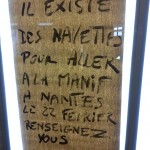 IL EXISTE
DES NAVETTES
POUR ALLER
A LA MANIF
A NANTES
LE 22 FEVRIER
RENSEIGNEZ
VOUS